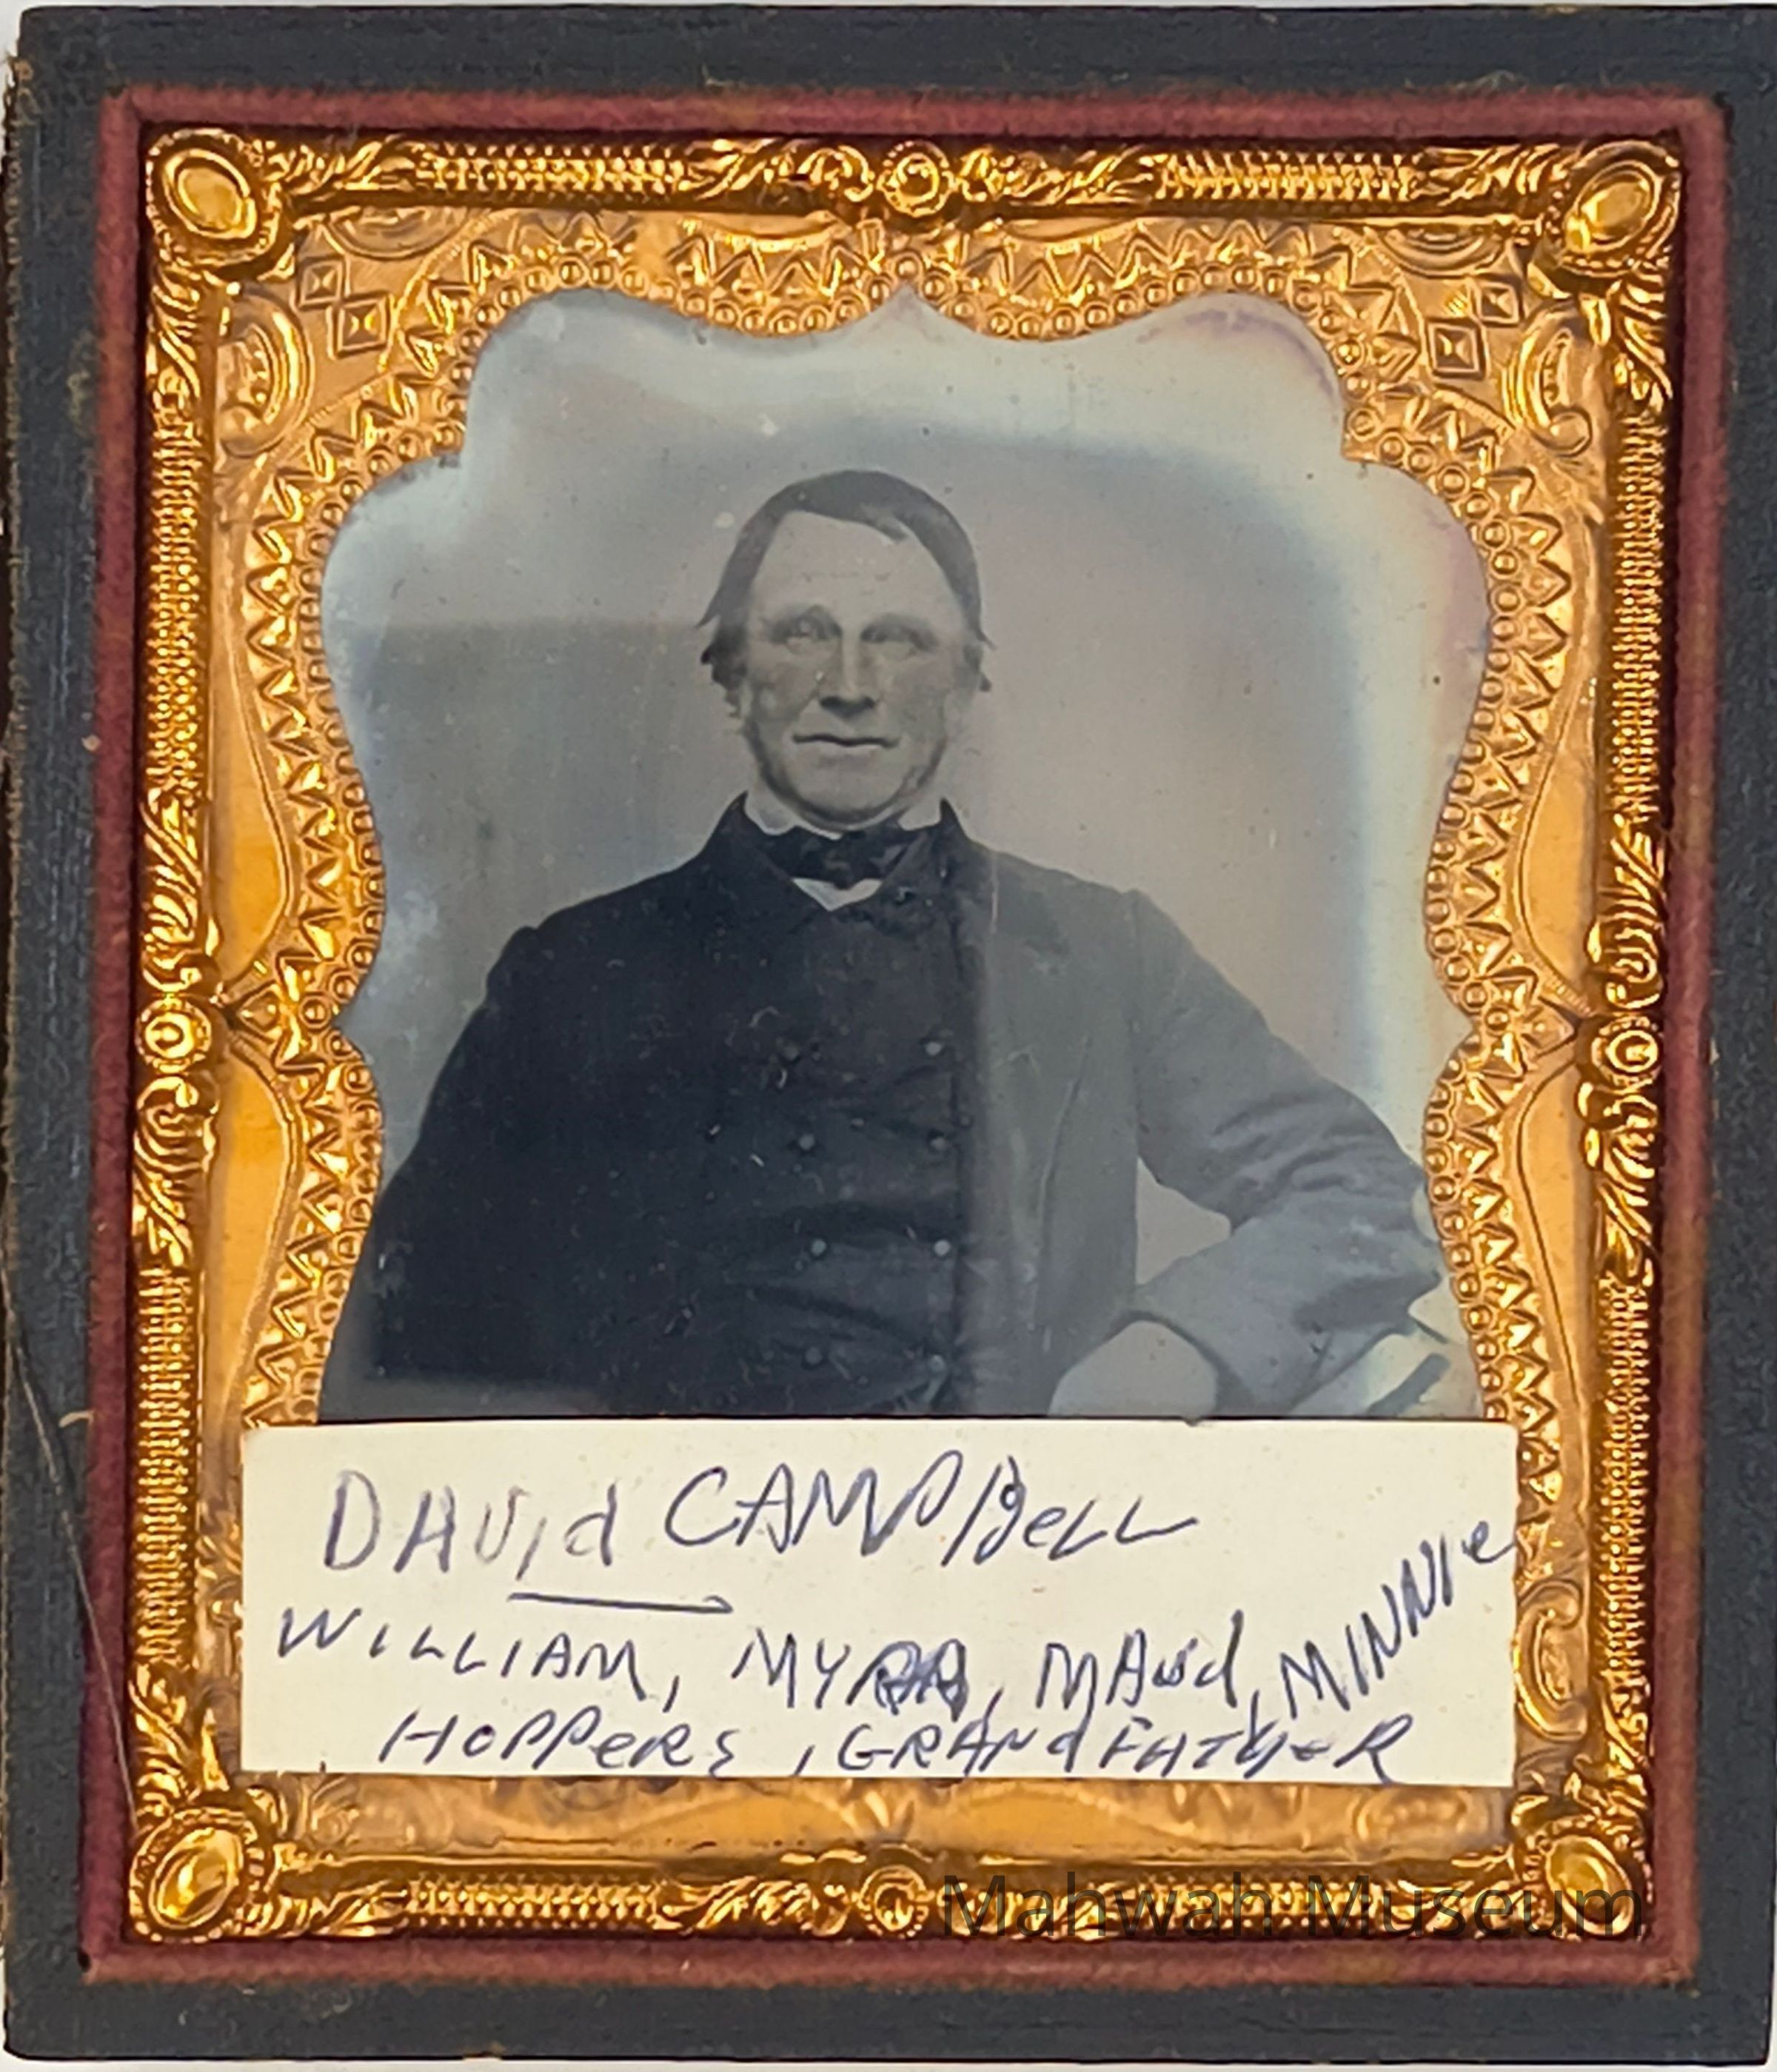 DAVid CAMPBeLL
WILLIAM, MYRA, MAUd, MINNIe
HOPPeRS, GRANdFATHeR
Mahwah Museum